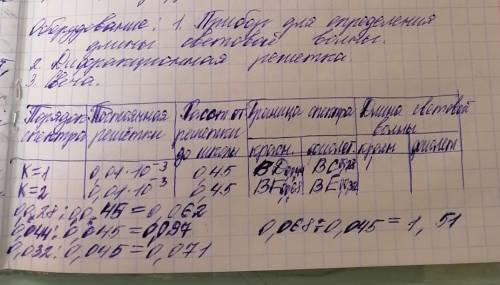 Оборудование: 1. Прибор для определения
длины световой волны.
2. Дифракционная решетка.
3. Свеча.
Порядок спектра Постоянная решётки Расст от решетки до шкалы Граница спектра Длина световой волны
красн. фиолет. красн фиолет
K=1 0,01·10⁻³ 0,45 BD BC
K=2 0,01·10⁻³ 0,45 BF BE
0,028:0,45=0,062
0,044:0,045=0,097
0,032:0,045=0,071
0,068:0,045=1,51